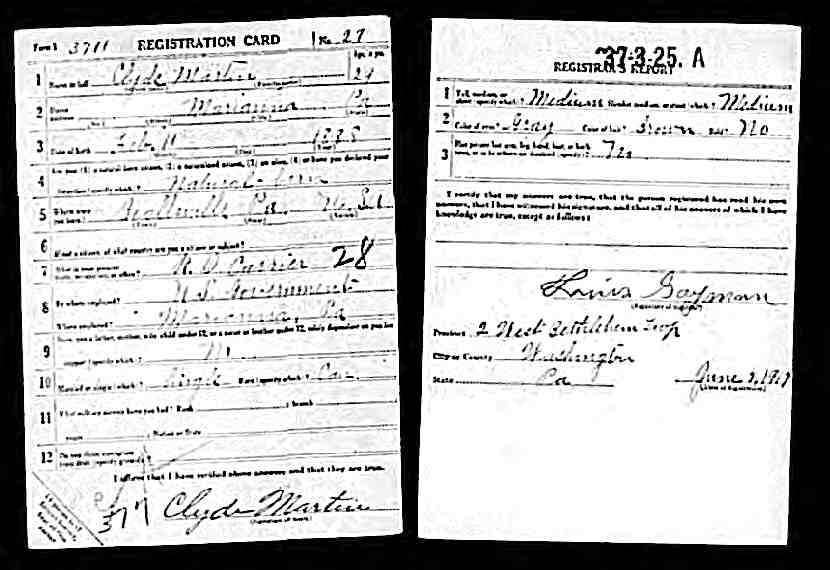 Form 1 3711 REGISTRATION CARD No. 27
Age, in yrs.
1 Name in full Clyde Martin 29
2 Home address Marianna Pa
3 Date of birth Feb 11 1888
4 Are you (1) a natural born citizen, (2) a naturalized citizen, (3) an alien, (4) or have you declared your
intention (specify which)? Natural-born
5 Where were you born? Pa
6 If not a citizen, of what country are you a citizen or subject?
7 What is your present trade, occupation, or office? R. D. Carrier 28
8 By whom employed? U S. Government
Where employed? Marianna, Pa
9 Have you a father, mother, wife, child under 12, or a sister or brother under 12, solely dependent on you for
support (specify which)? No
10 Married or single (which)? Single Race (specify which)? Cau
11 What military service have you had? Rank ; branch
years ; Nation or State
12 Do you claim exemption from draft (specify grounds)?
I affirm that I have verified above answers and that they are true.
371
Clyde Martin
(Signature or mark)
37-3-25. A
REGISTRAR'S REPORT
1 Tall, medium, or short (specify which)? Medium Slender, medium, or stout (which)? Medium
2 Color of eyes? Gray Color of hair? Brown Bald? No
3 Has person lost arm, leg, hand, foot, or both eyes, or is he otherwise disabled (specify)? No
I certify that my answers are true, that the person registered has read his own
answers, that I have witnessed his signature, and that all of his answers of which I have
knowledge are true, except as follows:
Louis Gayman
(Signature of registrar)
Precinct 2 West Bethlehem Twp
City or County Washington
State Pa June 5, 1917
(Date of registration)